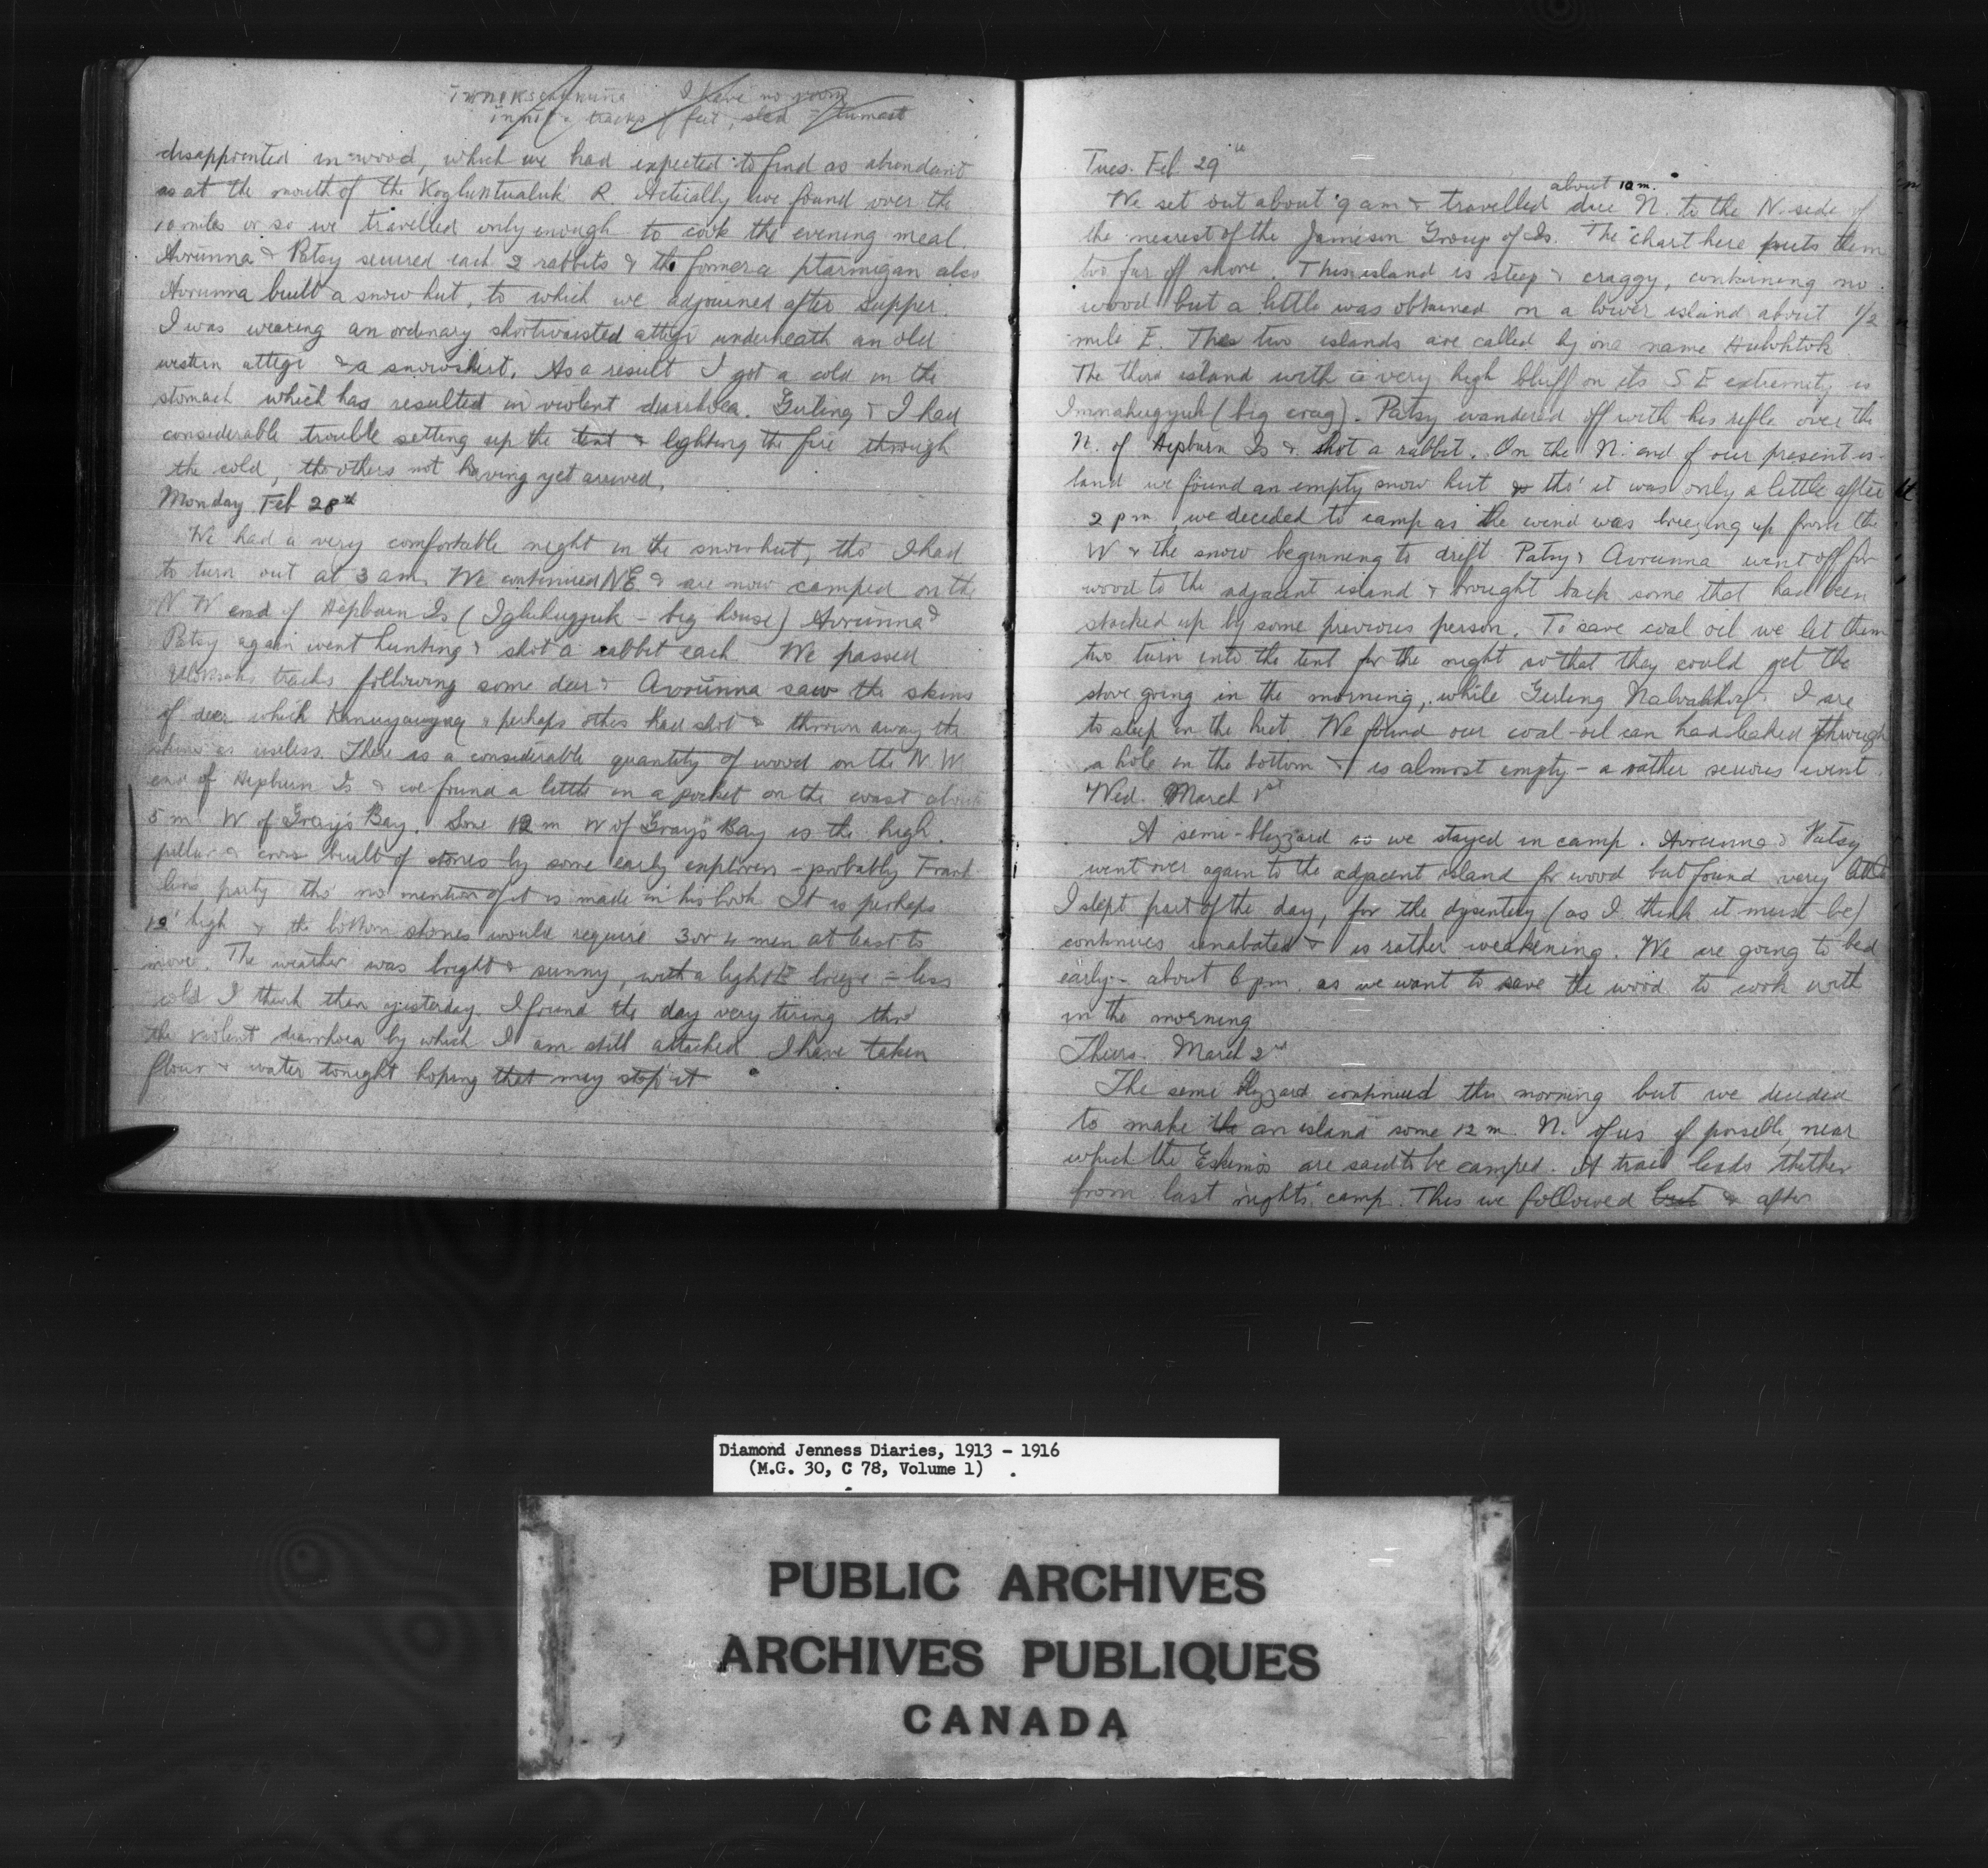 I have no room
tracks feet, sled
disappointed in wood, which we had expected to find as abundant
as at the mouth of the Kogluktualuk R. Actually we found over the
10 miles or so we travelled only enough to cook the evening meal.
Avrunna & Patsy secured each 2 rabbits & the former a ptarmigan also
Avrunna built a snow hut, to which we adjourned after supper.
I was wearing an ordinary shortwaisted attigi underneath an old
western attigi & a snowshirt. As a result I got a cold in the
stomach which has resulted in violent diarrhoea. Girling & I had
considerable trouble setting up the tent & lighting the fire through
the cold, the others not having yet arrived.
Monday Feb 28th
We had a very comfortable night in the snowhut, tho' I had
to turn out at 3 am. We continued NE & are now camped on the
N W end of Hepburn Is (Igluhugyuk - big house) Avrunna &
Patsy again went hunting & shot a rabbit each. We passed
tracks following some deer & Avrunna saw the skins
of deer which Kanuyauyaq & perhaps others had shot & thrown away the
skins as useless. There is a considerable quantity of wood on the N W
end of Hepburn Is & we found a little in a pocket on the coast about
5 m W of Gray's Bay. Some 12 m W of Gray's Bay is the high
pillar a cross built of stones by some early explorers - probably Frank-
lin's party tho' no mention of it is made in his book. It is perhaps
10' high & the bottom stones would require 3 or 4 men at least to
move. The weather was bright & sunny, with a light E breeze - less
cold I think than yesterday. I found the day very tiring thro'
the violent diarrhoea by which I am still attacked. I have taken
flour & water tonight hoping that may stop it
Tues. Feb. 29th
about 10 m.
We set out about 9 am & travelled due N. to the N. side of
the nearest of the Jameson Group of Is. The chart here puts them
too far off shore. This island is steep & craggy, containing no
wood but a little was obtained on a lower island about 1/2
mile E. The two islands are called by one name Huluhtok
The third island with a very high bluff on its S E extremity is
Imnahugyuk (big crag). Patsy wandered off with his rifle over the
N. of Hepburn Is & shot a rabbit. On the N. end of our present is-
land we found an empty snow hut & tho' it was only a little after
2 pm, we decided to camp as the wind was breezing up from the
W & the snow beginning to drift. Patsy & Avrunna went off for
wood to the adjacent island & brought back some that had been
stacked up by some previous person. To save coal oil we let them
two turn into the tent for the night so that they could get the
stove going in the morning, while Girling & I are
to sleep in the hut. We found our coal-oil can had leaked through
a hole in the bottom & is almost empty - a rather serious event.
Wed. March 1st
A semi-blizzard so we stayed in camp. Avrunna & Patsy
went over again to the adjacent island for wood but found very little
I slept part of the day, for the dysentery (as I think it must be)
continues unabated & is rather weakening. We are going to bed
early - about 6 pm. as we want to save the wood to cook with
in the morning
Thurs. March 2nd
The semi blizzard continued this morning but we decided
to make the an island some 12 m. N. of us if possible, near
which the Eskimos are said to be camped. A trail leads thither
from last night's camp. This we followed but & after
Diamond Jenness Diaries, 1913 - 1916
(M.G. 30, C 78, Volume 1)
PUBLIC ARCHIVES
ARCHIVES PUBLIQUES
CANADA